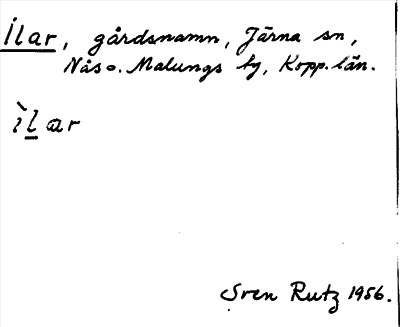 Ilar, gårdsnamn, Järna sn,
Nås o. Malungs tg, Kopp. län.
ìlar
Sven Rutz 1956.